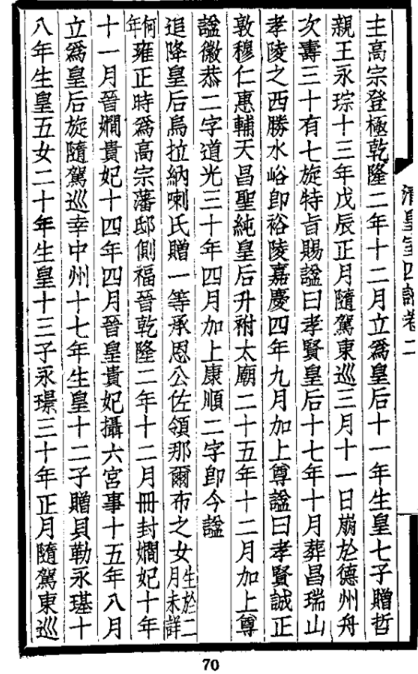 清皇室四譜卷二
主高宗登極乾隆二年十二月立爲皇后十一年生皇七子贈哲
親王永琮十三年戊辰正月隨駕東巡三月十一日崩於德州舟
次壽三十有七旋特旨賜諡曰孝賢皇后十七年十月葬昌瑞山
孝陵之西勝水峪卽裕陵嘉慶四年九月加上尊諡曰孝賢誠正
敦穆仁惠輔天昌聖純皇后升祔太廟二十五年十二月加上尊
諡徽恭二字道光三十年四月加上康順二字卽今諡
追降皇后烏拉納喇氏贈一等承恩公佐領那爾布之女生於二月未詳
何年雍正時爲高宗藩邸側福晉乾隆二年十二月冊封嫺妃十年
十一月晉嫺貴妃十四年四月晉皇貴妃攝六宮事十五年八月
立爲皇后旋隨駕巡幸中州十七年生皇十二子贈貝勒永璂十
八年生皇五女二十年生皇十三子永璟三十年正月隨駕東巡
70